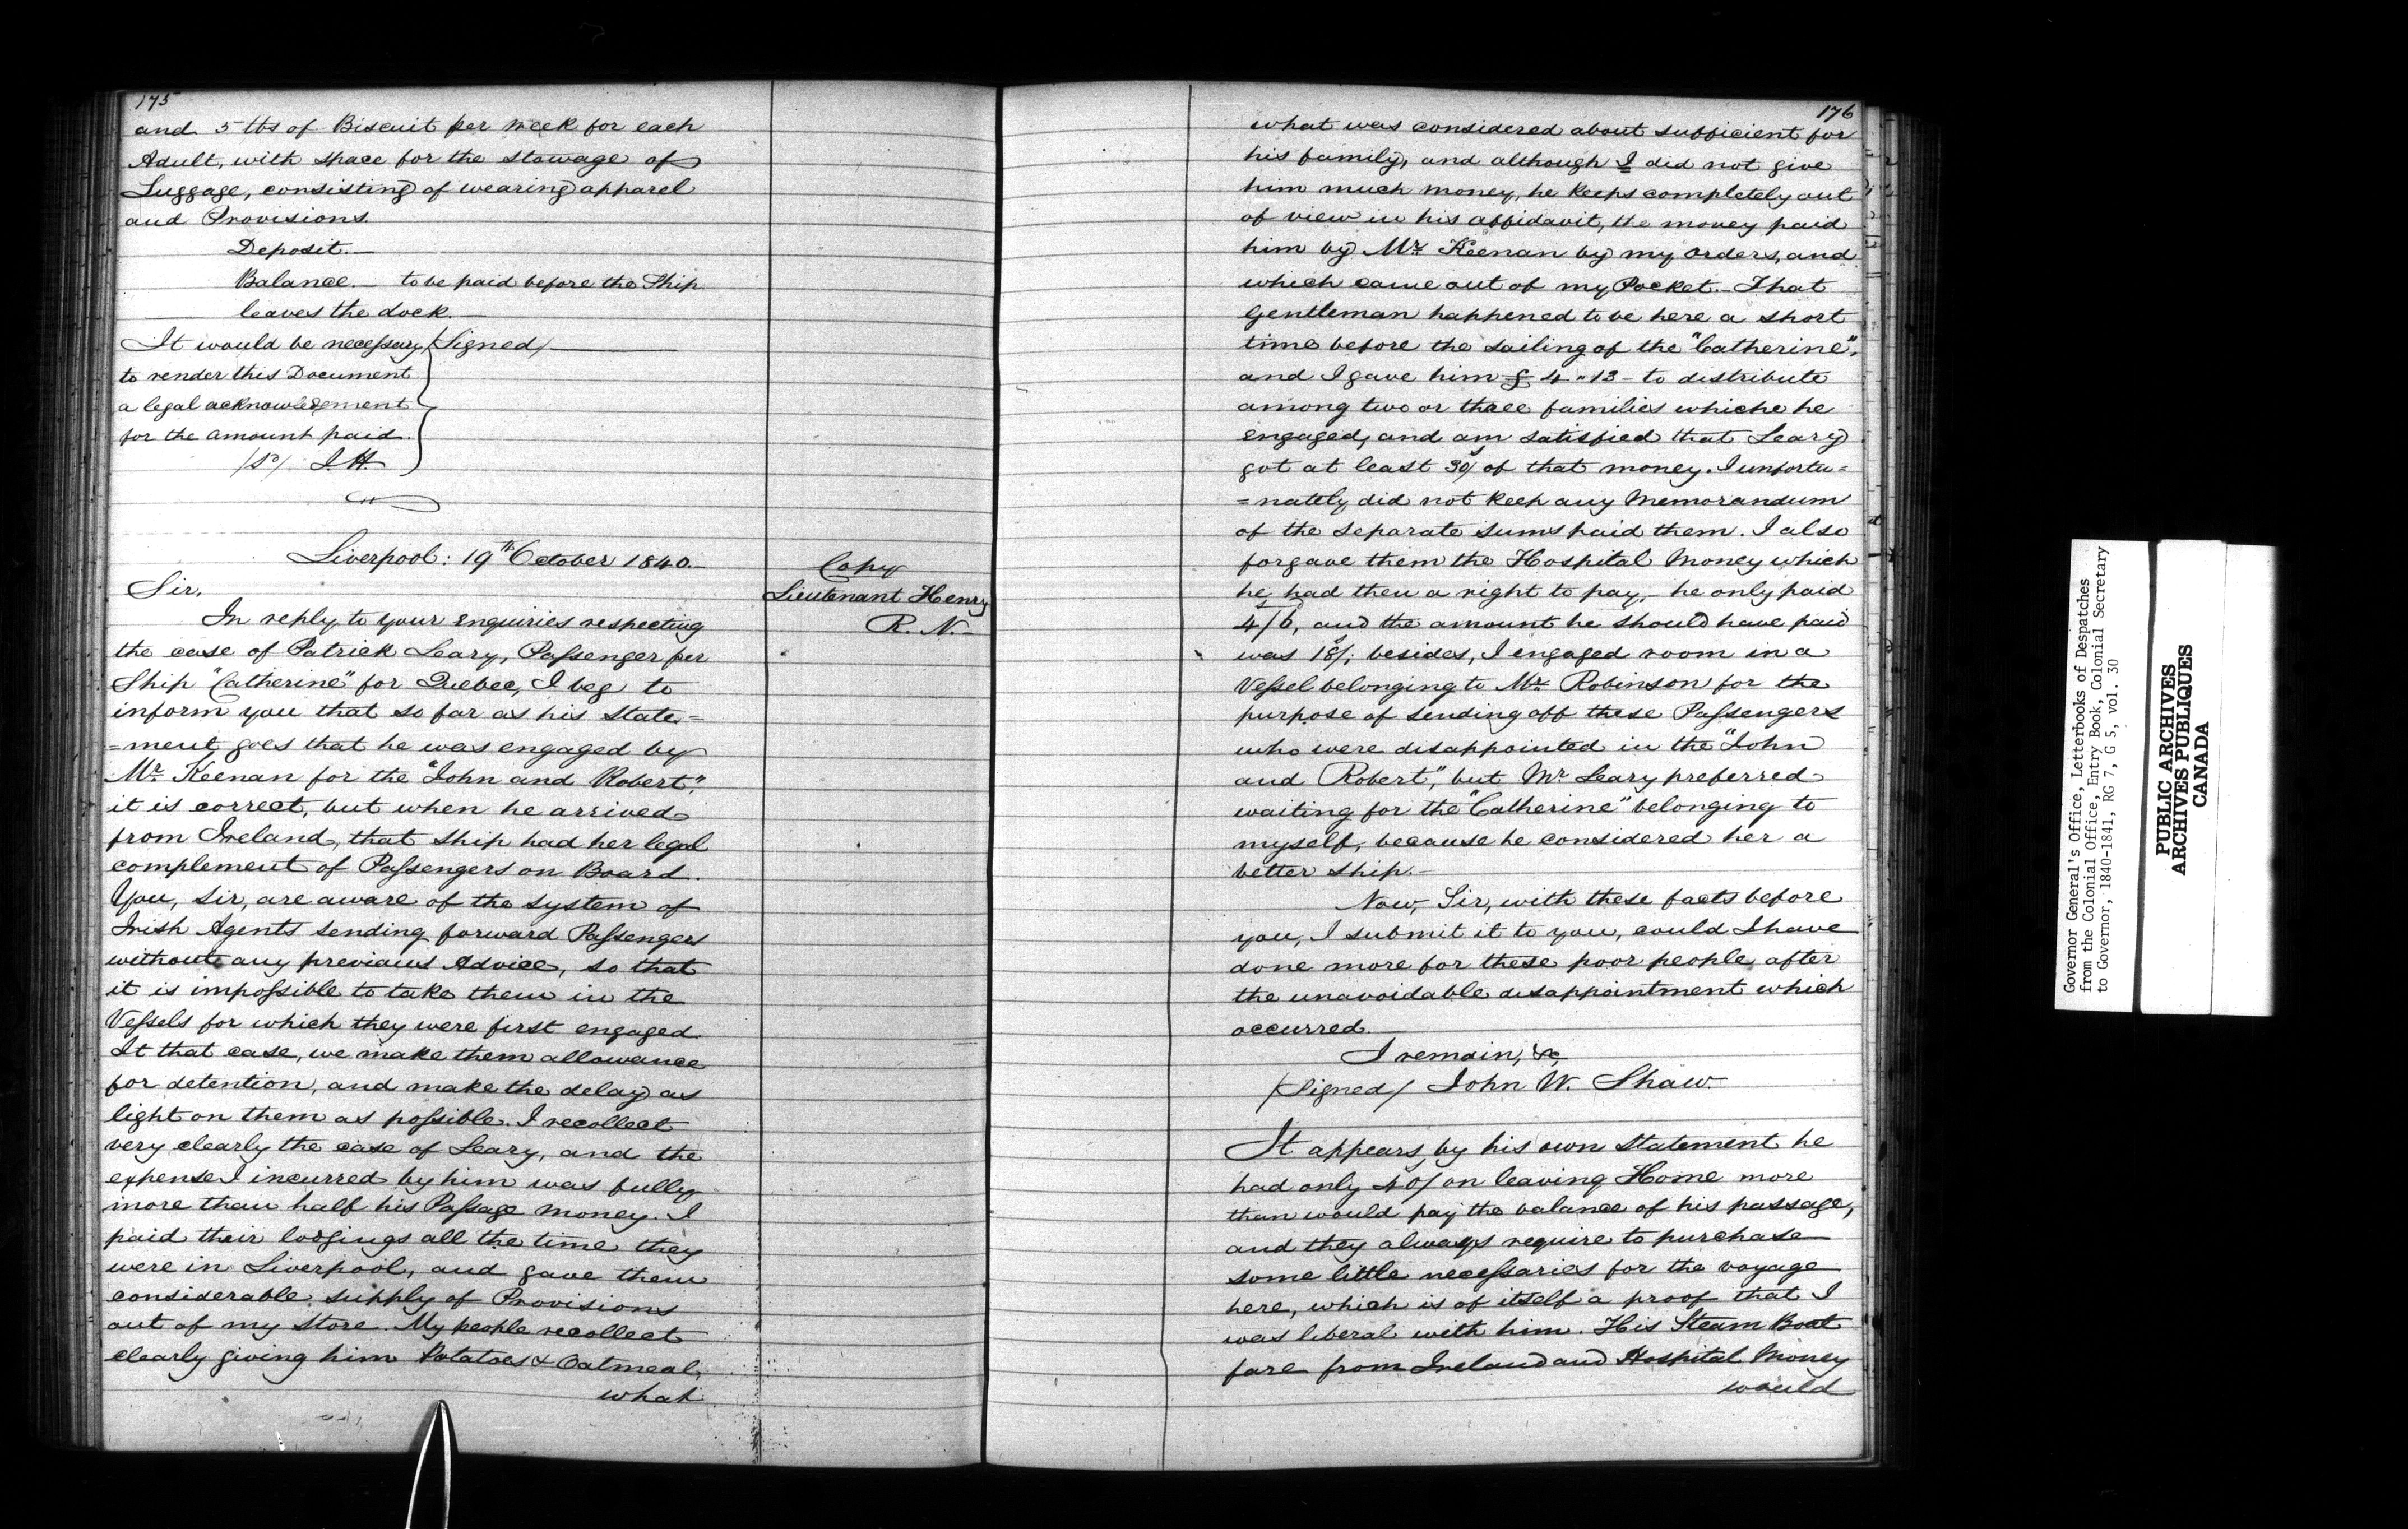 175
and 5 lbs of Biscuit per week for each
Adult, with space for the stowage of
Luggage, consisting of wearing apparel
and Provisions.
Deposit.—
Balance.— to be paid before the Ship
leaves the dock.—
It would be necessary (Signed)
to render this Document
a legal acknowledgment
for the amount paid.
J. H.
Liverpool: 19th October 1840.—
Copy
Lieutenant Henry
R. N.—
Sir,
In reply to your enquiries respecting
the case of Patrick Leary, Passenger per
Ship "Catherine" for Quebec, I beg to
inform you that so far as his state=
=ment goes that he was engaged by
Mr. Keenan for the "John and Robert",
it is correct, but when he arrived
from Ireland, that ship had her legal
complement of Passengers on Board.
You, Sir, are aware of the system of
Irish Agents sending forward Passengers
without any previous Advice, so that
it is impossible to take them in the
Vessels for which they were first engaged.
It that case, we make them allowance
for detention, and make the delay as
light on them as possible. I recollect
very clearly the case of Leary, and the
expense I incurred by him was fully
more than half his Passage money. I
paid their lodgings all the time they
were in Liverpool, and gave them
considerable supply of Provisions
out of my Store. My people recollect
clearly giving him Potatoes & Oatmeal,
what
176
what was considered about sufficient for
his family, and although I did not give
him much money, he keeps completely out
of view in his affidavit, the money paid
him by Mr. Keenan by my orders, and
which came out of my Pocket.— That
Gentleman happened to be here a short
time before the sailing of the "Catherine",
and I gave him £4 " 13 - to distribute
among two or three families whiche he
engaged, and am satisfied that Leary
got at least 30s/ of that money. I unfortu=
=nately did not keep any Memorandum
of the separate sums paid them. I also
forgave them the Hospital Money which
he had then a right to pay,— he only paid
4s/6, and the amount he should have paid
was 18s/; besides, I engaged room in a
Vessel belonging to Mr. Robinson for the
purpose of sending off these Passengers
who were disappointed in the "John
and Robert", but Mr Leary preferred
waiting for the "Catherine" belonging to
myself, because he considered her a
better ship.—
Now, Sir, with these facts before
you, I submit it to you, could I have
done more for these poor people after
the unavoidable disappointment which
occurred.—
I remain, &c,
(Signed) John W. Shaw.—
It appears by his own statement he
had only 40s/ on leaving Home more
than would pay the balance of his passage,
and they always require to purchase
some little necessaries for the voyage
here, which is of itself a proof that I
was liberal with him. His Steam Boat
fare from Ireland and Hospital Money
would
Governor General's Office, Letterbooks of Despatches
from the Colonial Office, Entry Book, Colonial Secretary
to Governor, 1840-1841, RG 7, G 5, vol. 30
PUBLIC ARCHIVES
ARCHIVES PUBLIQUES
CANADA